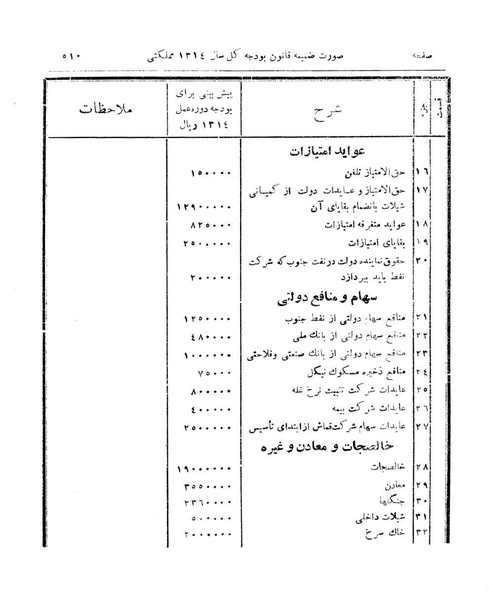 صفحه صورت ضمیمه قانون بودجه کل سال ۱۳۱٤ مملکتی ۵۱۰
شرح پیش بینی برای بودجه دوره عمل ۱۳۱٤ ریال ملاحظات
عواید امتیازات
۱۶ حق الامتیاز تلفن ۱۵۰۰۰۰
۱۷ حق الامتیاز و عایدات دولت از کمپانی
شیلات بانضمام بقایای آن ۱۲۹۰۰۰۰۰
۱۸ عواید متفرقه امتیازات ۸۲۵۰۰۰
۱۹ بقایای امتیازات ۲۵۰۰۰۰۰
۲۰ حقوق نماینده دولت در نفت جنوب که شرکت
نفط باید بپردازد ۲۰۰۰۰۰
سهام و منافع دولتی
۲۱ منافع سهام دولتی از نفط جنوب ۱۲۵۰۰۰۰
۲۲ منافع سهام دولتی از بانك ملی ٤۸۰۰۰۰۰
۲۳ منافع سهام دولتی از بانك صنعتی وفلاحتی ۱۰۰۰۰۰۰
۲٤ منافع ذخیره مسکوك نیکل ۷۵۰۰۰
۲۵ عایدات شرکت تثبیت نرخ غله ۸۰۰۰۰۰
۲۶ عایدات شرکت بیمه ٤۰۰۰۰۰
۲۷ عایدات سهام شرکت قماش از ابتدای تأسیس ۲۵۰۰۰۰۰
خالصجات و معادن و غیره
۲۸ خالصجات ۱۹۰۰۰۰۰۰
۲۹ معادن ۳۵۵۰۰۰۰
۳۰ جنگلها ۲۳۶۰۰۰۰
۳۱ شیلات داخلی ۵۰۰۰۰۰
۳۲ خاك سرخ ۲۰۰۰۰۰۰